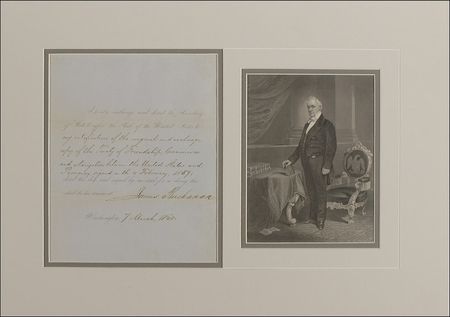 I hereby authorize and direct the Secretary
of State to affix the Seal of the United States to
my ratification of the original and exchange
copy of the Treaty of Friendship, Commerce
and Navigation between the United States and
Paraguay signed on the 4 February, 1859;
and
shall be his warrant. James Buchanan
Washington, 7 March, 1860.